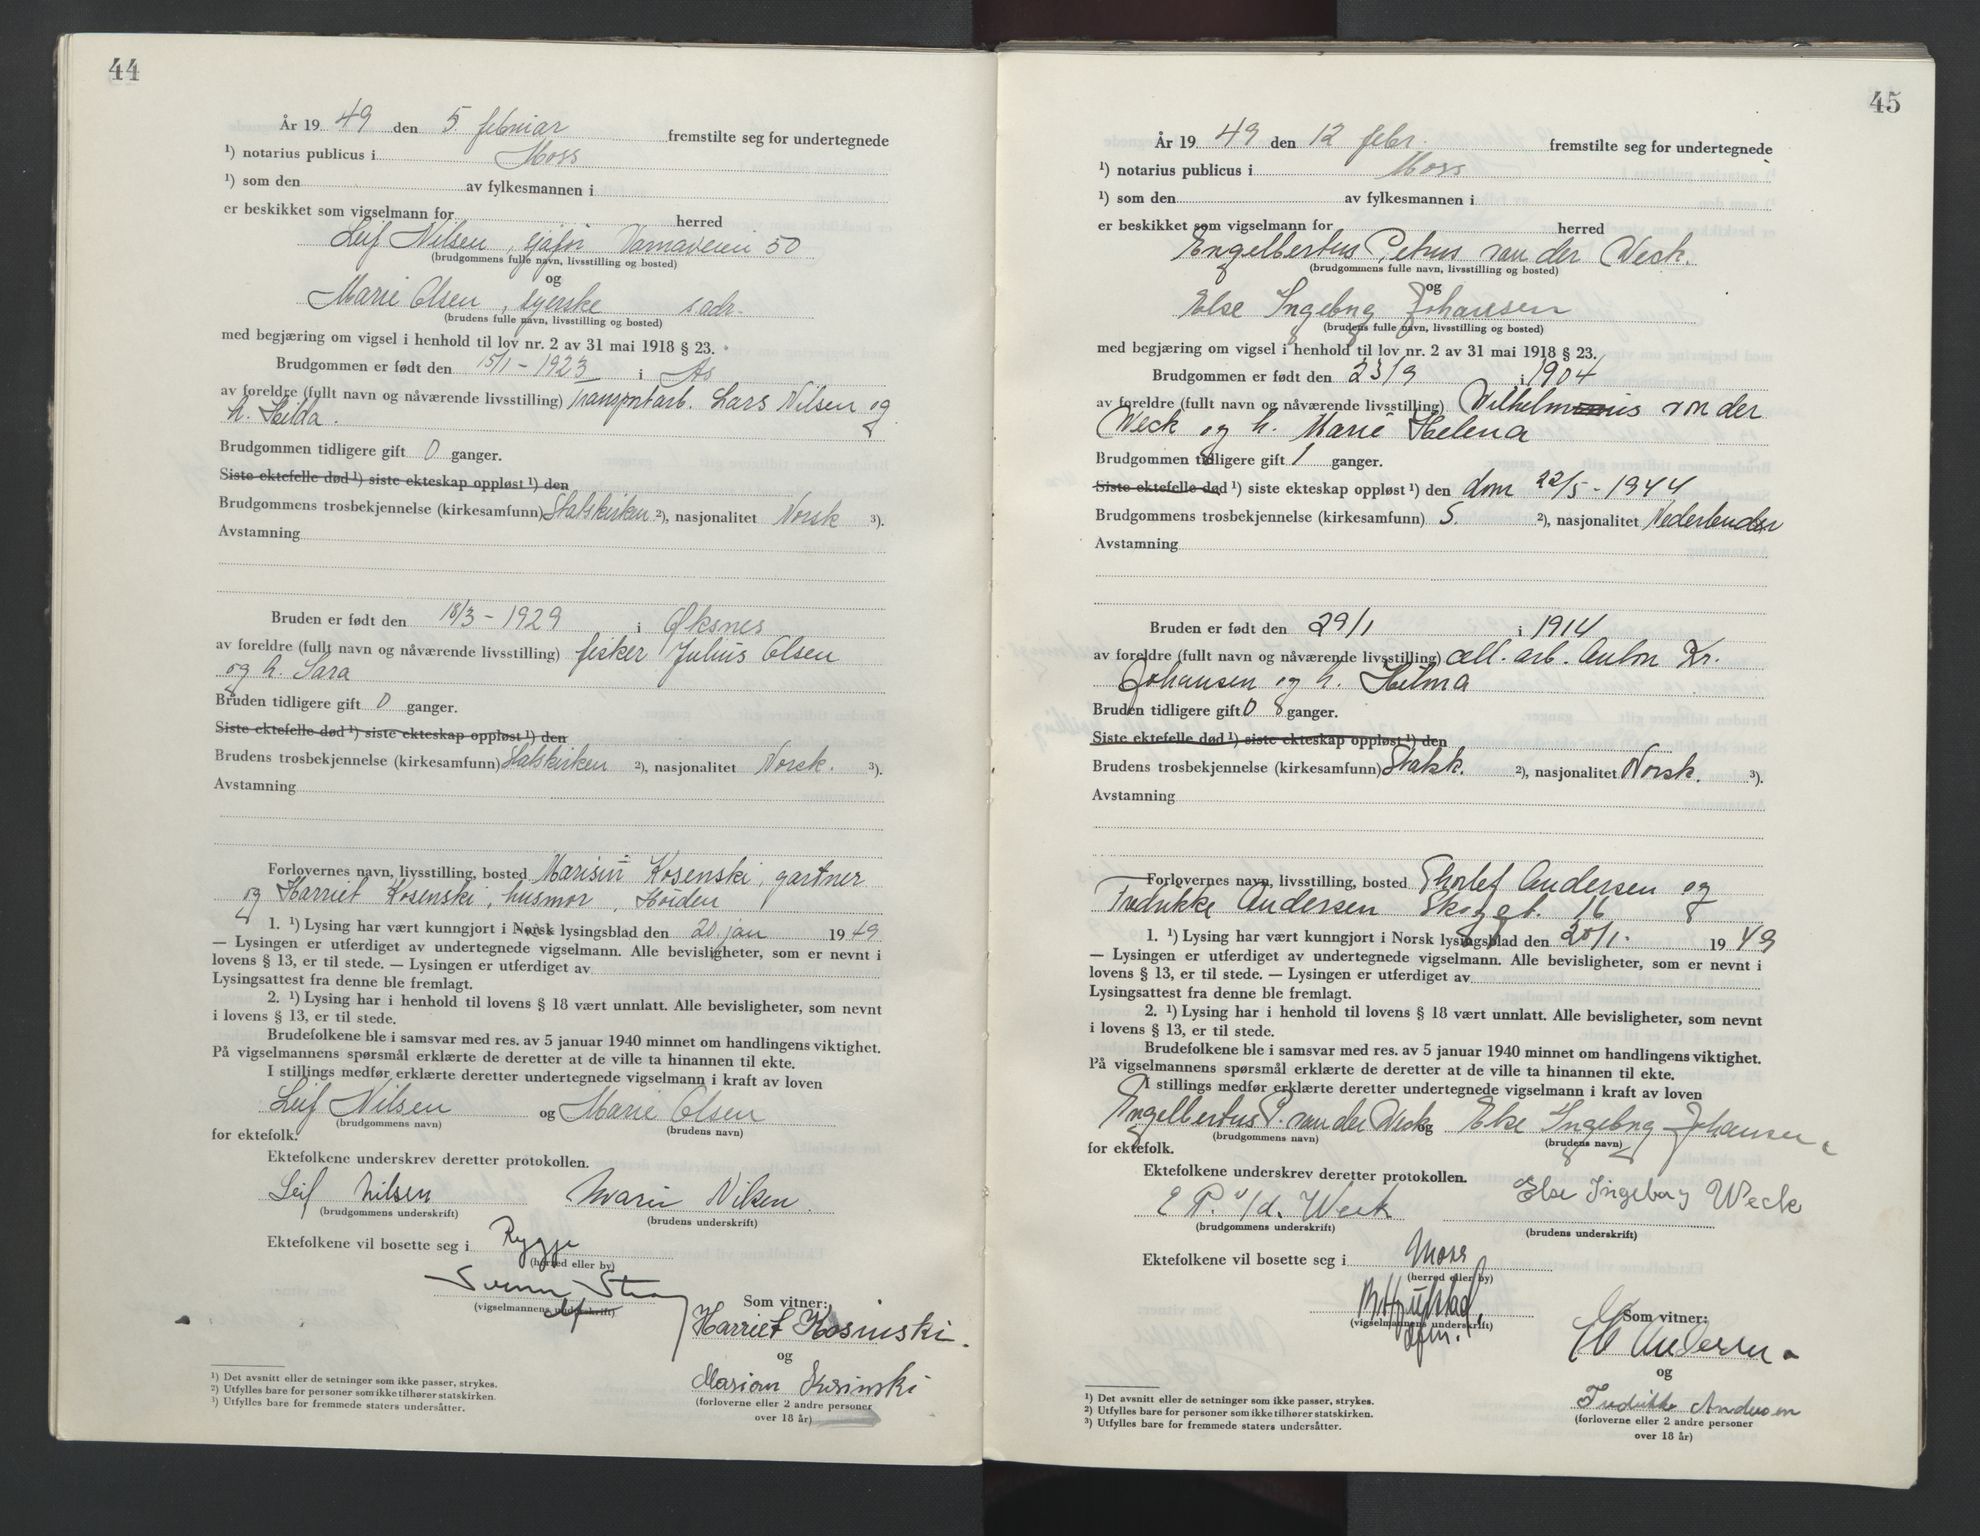 44
År 19 49 den 5 februar fremstilte seg for undertegnede
¹) notarius publicus i Moss
¹) som den av fylkesmannen i
er beskikket som vigselmann for herred
Leif Nilsen, sjåfør Varnaveien 50
(brudgommens fulle navn, livsstilling og bosted)
og
Marie Olsen, syerske s adr.
(brudens fulle navn, livsstilling og bosted)
med begjæring om vigsel i henhold til lov nr. 2 av 31 mai 1918 § 23.
Brudgommen er født den 15/1 - 1923 i Ås
av foreldre (fullt navn og nåværende livsstilling) transportarb. Lars Nilsen og
h. Hilda.
Brudgommen tidligere gift 0 ganger.
Siste ektefelle død ¹) siste ekteskap oppløst ¹) den
Brudgommens trosbekjennelse (kirkesamfunn) Statskirken ²), nasjonalitet Norsk ³).
Avstamning
Bruden er født den 18/3 - 1929 i Øksnes
av foreldre (fullt navn og nåværende livsstilling) fisker Julius Olsen
og h. Sara
Bruden tidligere gift 0 ganger.
Siste ektefelle død ¹) siste ekteskap oppløst ¹) den
Brudens trosbekjennelse (kirkesamfunn) Statskirken ²), nasjonalitet Norsk. ³).
Avstamning
Forlovernes navn, livsstilling, bosted Kosenski, gartner
og Harriet Kosenski, husmor, Høiden
1. ¹) Lysing har vært kunngjort i Norsk lysingsblad den 20 jan 19 49
— Lysingen er utferdiget av undertegnede vigselmann. Alle bevisligheter, som er nevnt i
lovens § 13, er til stede. — Lysingen er utferdiget av
Lysingsattest fra denne ble fremlagt.
2. ¹) Lysing har i henhold til lovens § 18 vært unnlatt. Alle bevisligheter, som nevnt
i lovens § 13, er til stede.
Brudefolkene ble i samsvar med res. av 5 januar 1940 minnet om handlingens viktighet.
På vigselmannens spørsmål erklærte de deretter at de ville ta hinannen til ekte.
I stillings medfør erklærte deretter undertegnede vigselmann i kraft av loven
Leif Nilsen og Marie Olsen
(brudgommens navn) (brudens navn)
for ektefolk.
Ektefolkene underskrev deretter protokollen.
Leif Nilsen Marie Nilsen.
(brudgommens underskrift) (brudens underskrift)
Ektefolkene vil bosette seg i Rygge
(herred eller by)
(vigselmannens underskrift)
Som vitner:
Harriet Kosinski.
og
Marian Kosinski
(forloverne eller 2 andre personer
over 18 år)
¹) Det avsnitt eller de setninger som ikke passer, strykes.
²) Utfylles bare for personer som ikke tilhører statskirken.
³) Utfylles bare for fremmede staters undersåtter.
45
År 19 49 den 12 febr. fremstilte seg for undertegnede
¹) notarius publicus i Moss
¹) som den av fylkesmannen i
er beskikket som vigselmann for herred
Engelbertus Petrus van der Weck.
(brudgommens fulle navn, livsstilling og bosted)
og
Else Ingebrg Johansen
(brudens fulle navn, livsstilling og bosted)
med begjæring om vigsel i henhold til lov nr. 2 av 31 mai 1918 § 23.
Brudgommen er født den 23/9 i 1904
av foreldre (fullt navn og nåværende livsstilling) van der
Weck og h. Marie Helena
Brudgommen tidligere gift 1 ganger.
Siste ektefelle død ¹) siste ekteskap oppløst ¹) den dom 22/5 - 1944
Brudgommens trosbekjennelse (kirkesamfunn) S. ²), nasjonalitet Nederlender
Avstamning
Bruden er født den 29/1 i 1914
av foreldre (fullt navn og nåværende livsstilling) cell. arb. Anton Kr.
Johansen og h. Hilma
Bruden tidligere gift 0 ganger.
Siste ektefelle død ¹) siste ekteskap oppløst ¹) den
Brudens trosbekjennelse (kirkesamfunn) Statsk. ²), nasjonalitet Norsk. ³).
Avstamning
Forlovernes navn, livsstilling, bosted Thorlef Andersen og
Fredrikke Andersen Skoggt. 16
1. ¹) Lysing har vært kunngjort i Norsk lysingsblad den 20/1. 19 49
— Lysingen er utferdiget av undertegnede vigselmann. Alle bevisligheter, som er nevnt i
lovens § 13, er til stede. — Lysingen er utferdiget av
Lysingsattest fra denne ble fremlagt.
2. ¹) Lysing har i henhold til lovens § 18 vært unnlatt. Alle bevisligheter, som nevnt
i lovens § 13, er til stede.
Brudefolkene ble i samsvar med res. av 5 januar 1940 minnet om handlingens viktighet.
På vigselmannens spørsmål erklærte de deretter at de ville ta hinannen til ekte.
I stillings medfør erklærte deretter undertegnede vigselmann i kraft av loven
Engelbertus P. van der Weck og Else Ingebrg Johansen
(brudgommens navn) (brudens navn)
for ektefolk.
Ektefolkene underskrev deretter protokollen.
E P. v/d. Weck Else Ingeborg Weck
(brudgommens underskrift) (brudens underskrift)
Ektefolkene vil bosette seg i Moss
(herred eller by)
(vigselmannens underskrift)
Som vitner:
Andersen
og
Fredrikke Andersen
(forloverne eller 2 andre personer
over 18 år)
¹) Det avsnitt eller de setninger som ikke passer, strykes.
²) Utfylles bare for personer som ikke tilhører statskirken.
³) Utfylles bare for fremmede staters undersåtter.